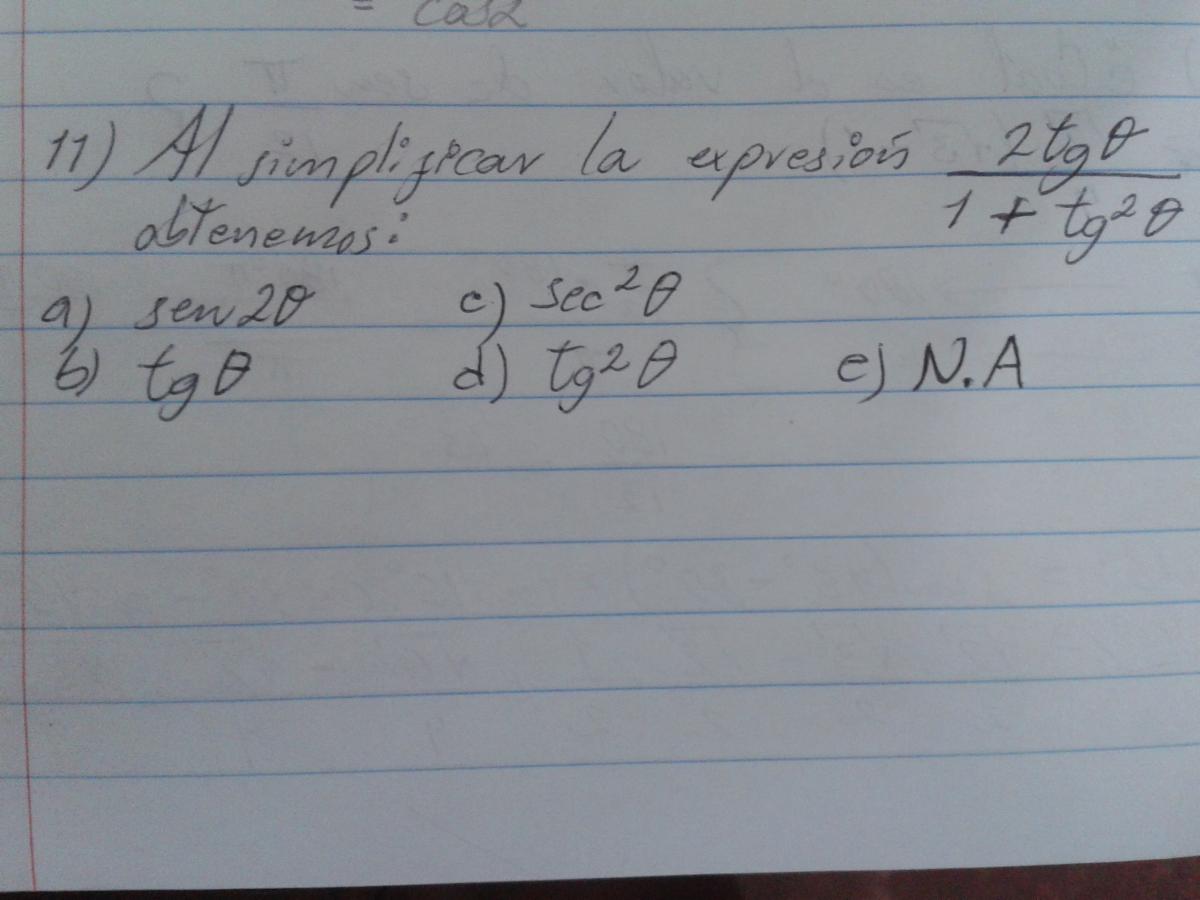 = cos2
11) Al simplificar la expresión 2tgθ / 1 + tg²θ
obtenemos:
a) sen2θ c) sec²θ
b) tgθ d) tg²θ e) N.A